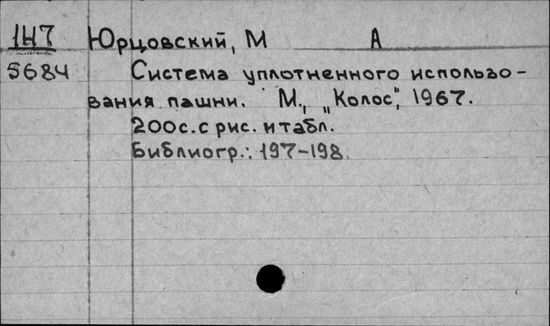 1Н7 Юрцовский, М А
5684 Система уплотненного использо-
вания пашни. М., „Колос", 1967.
200с. с рис. и табл.
Библиогр.: 197-198.